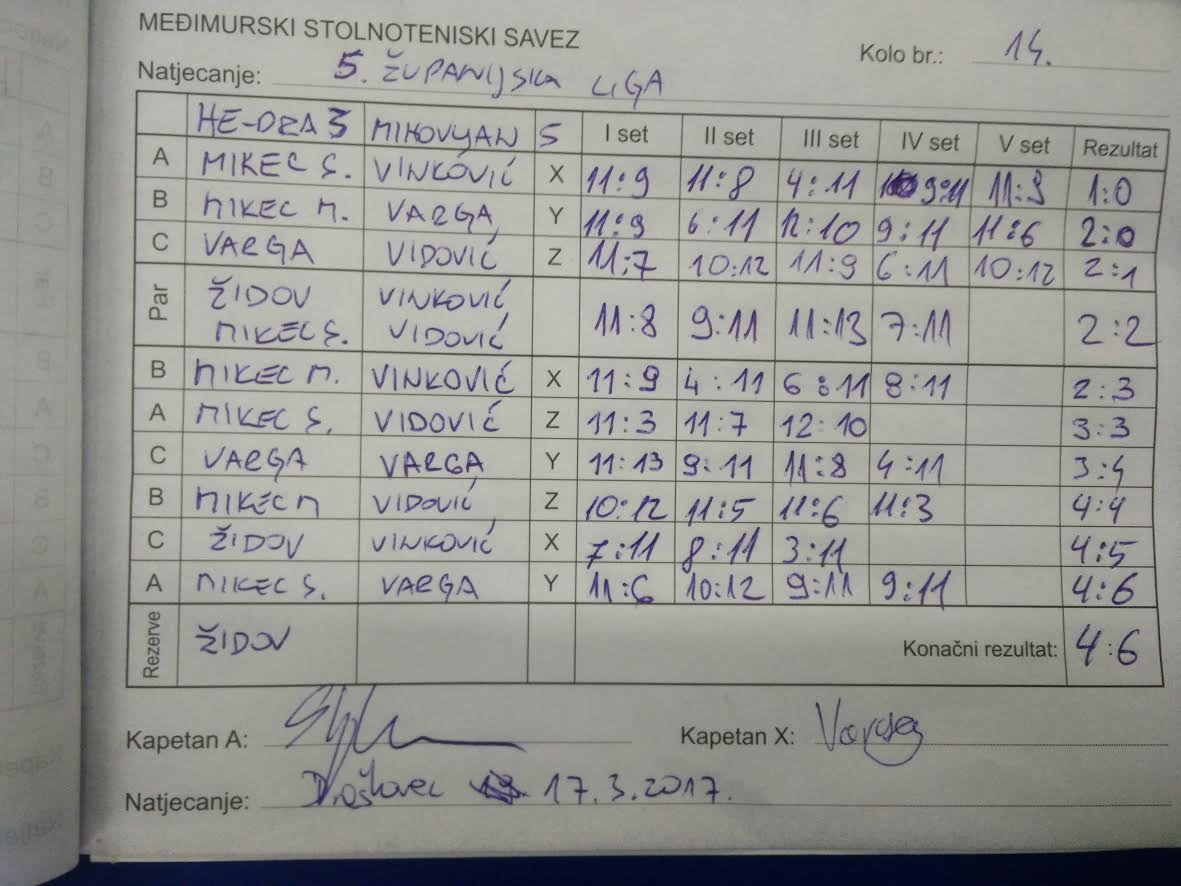 MEĐIMURSKI STOLNOTENISKI SAVEZ
Kolo br.: 14.
Natjecanje: 5. ŽUPANIJSKA LIGA
HE-DRA 3 MIHOVLJAN 5 I set II set III set IV set V set Rezultat
A MIKEC S. VINKOVIĆ X 11:9 11:8 4:11 9:11 11:3 1:0
B MIKEC M. VARGA Y 11:9 6:11 12:10 9:11 11:6 2:0
C VARGA VIDOVIĆ Z 11:7 10:12 11:9 6:11 10:12 2:1
Par ŽIDOV VINKOVIĆ
MIKEC S. VIDOVIĆ 11:8 9:11 11:13 7:11 2:2
B MIKEC M. VINKOVIĆ X 11:9 4:11 6:11 8:11 2:3
A MIKEC S. VIDOVIĆ Z 11:3 11:7 12:10 3:3
C VARGA VARGA Y 11:13 9:11 11:8 4:11 3:4
B MIKEC M VIDOVIĆ Z 10:12 11:5 11:6 11:3 4:4
C ŽIDOV VINKOVIĆ X 7:11 8:11 3:11 4:5
A MIKEC S. VARGA Y 11:6 10:12 9:11 9:11 4:6
Rezerve ŽIDOV Konačni rezultat: 4:6
Kapetan A: Kapetan X: Varga
Natjecanje: Draškovec 17.3.2017.